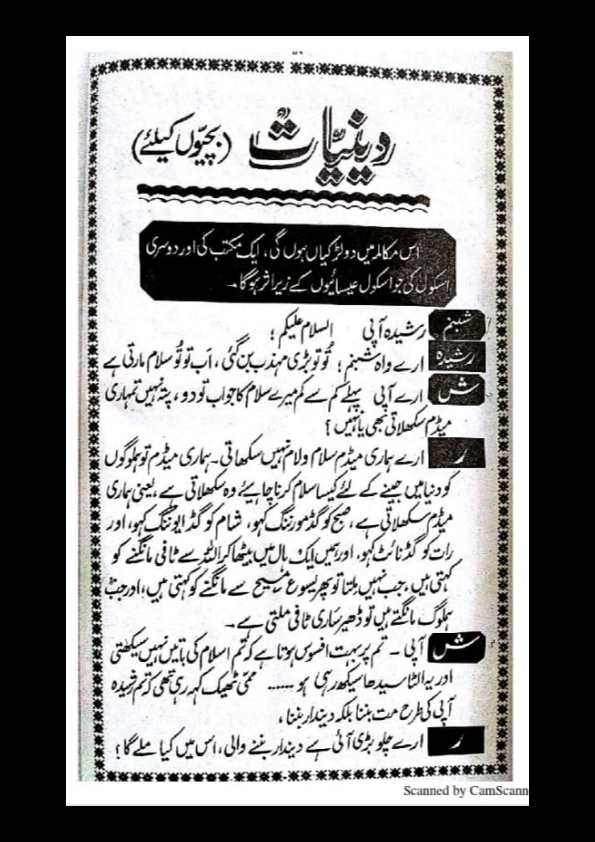 دینیات (بچیوں کیلئے)
اس مکالمہ میں دو لڑکیاں ہوں گی، ایک مکتب کی اور دوسری
اسکول کی جو اسکول عیسائیوں کے زیر اثر ہوگا۔
شبنم رشیدہ آپی السلام علیکم؛
رشیدہ ارے واہ شبنم؛ تُو تو بڑی مہذب بن گئی، اَب تو تُو سلام مارتی ہے
ش ارے آپی پہلے کم سے کم میرے سلام کا جواب تو دو، پتہ نہیں تمہاری
میڈم سکھلاتی بھی یا نہیں؟
ر ارے ہماری میڈم سلام ولام نہیں سکھاتی۔ ہماری میڈم تو ہملوگوں
کو دنیا میں جینے کے لئے کیسا سلام کرنا چاہیئے وہ سکھلاتی ہے، یعنی ہماری
میڈم سکھلاتی ہے، صبح کو گڈ مورننگ کہو، شام کو گڈ ایوننگ کہو، اور
رات کو گڈ نائٹ کہو، اور ہمیں ایک ہال میں بیٹھا کر اللہ سے ٹافی مانگنے کو
کہتی ہیں، جب نہیں ملتا تو پھر یسوع مسیح سے مانگنے کو کہتی ہیں، اور جب
ہملوگ مانگتے ہیں تو ڈھیر ساری ٹافی ملتی ہے۔
ش آپی۔ تم پر بہت افسوس ہوتا ہے کہ تم اسلام کی باتیں نہیں سیکھتی
اور یہ الٹا سیدھا سیکھ رہی ہو ...... ممّی ٹھیک کہہ رہی تھی کہ تم رشیدہ
آپی کی طرح مت بننا بلکہ دیندار بننا،
ر ارے چلو بڑی آئی ہے دیندار بننے والی، اس میں کیا ملے گا؟
Scanned by CamScann